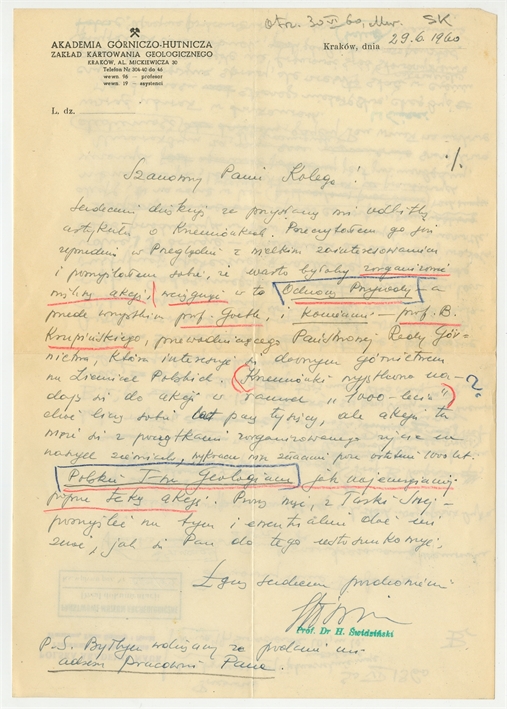 Otrz. 30 VI 60, SK
AKADEMIA GÓRNICZO-HUTNICZA
ZAKŁAD KARTOWANIA GEOLOGICZNEGO
KRAKÓW, AL. MICKIEWICZA 30
Telefon Nr 304-40 do 46
wewn. 96 — profesor
wewn. 19 — asystenci
Kraków, dnia 29.6.1960
L. dz.
./.
Szanowny Panie Kolego!
Serdecznie dziękuję za przysłaną mi odbitkę
artykułu o Krzemionkach. Przeczytałem go już
uprzednio w Przeglądzie z wielkim zainteresowaniem
i pomyślałem sobie, że warto byłoby zorganizować
akcję, wciągnąć w to Ochronę Przyrody - a
przede wszystkim prof. Goetla, i koniecznie - prof. B.
Krupińskiego, przewodniczącego Państwowej Rady Gór-
nictwa, który interesuje się dawnym górnictwem
na Ziemiach Polskich. (Krzemionki wprawdzie na-
dają się do akcji w ramach "1000-lecia") ?
choć liczą sobie parę tysięcy, ale akcja ta
może się z początkami zorganizowanego życia na
naszych ziemiach, ostatnie 1000 lat.
Polskie T-wo Geologiczne jak najenergiczniej
taką akcję. Proszę więc, z Taski Swej
pomyśleć na tym i ewentualnie dać mi
znać, jak się Pan do tego ustosunkowuje,
Łączę serdeczne pozdrowienia
Prof. Dr H. Świdziński
P.S. Byłbym wdzięczny za podanie mi
adresu Pracowni Pana.